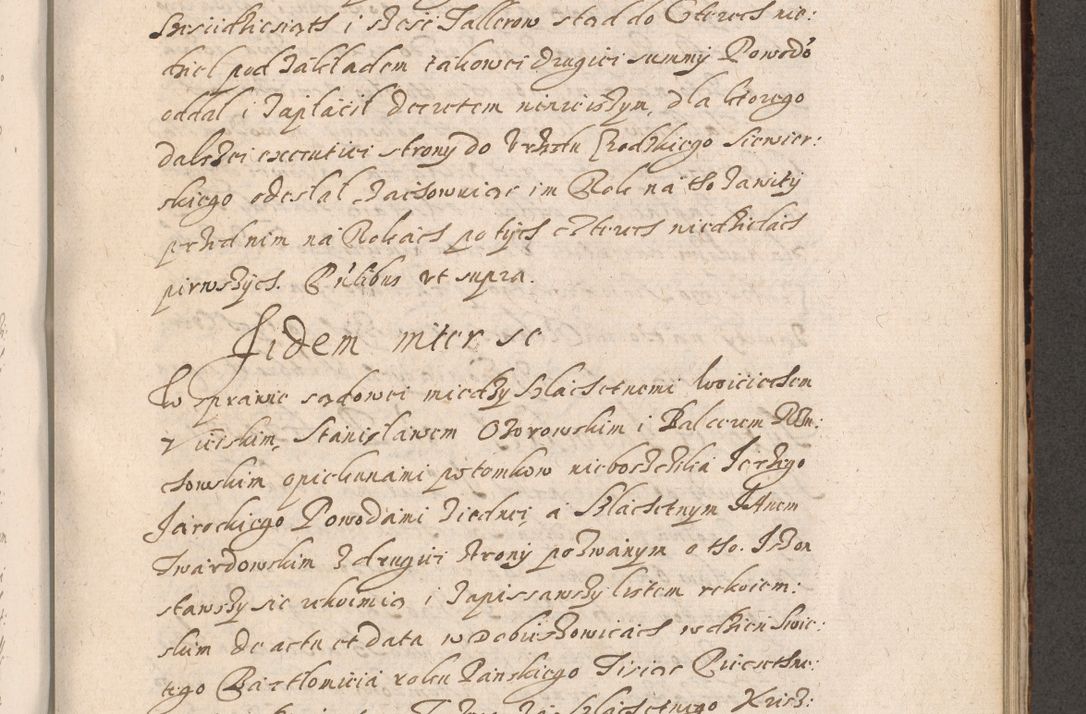 Sześcidziesiąth i sześć Tallerow stąd do Cterech nie:
dziel pod zakładem takowei drugiei summy Powodo
oddal i zapłacił decretem ninieiszym, dla ktorego
dalszei executiei strony do Urzędu Grodzkiego Siewier:
skiego odesłał zachowuiąc im Rok na tho zawity
przed nim na Rokach po tych czterech niedzielach
pirwszych. Pntibus ut supra.
Iidem inter se
W sprawie sądowei między szlachetnemi Woiciechem
Stanisławem Ozorowskim i Balcerem
chowskim opiekunami potomkow nieboszczika Jerzego
Jarockiego Powodami ziednei, a Szlachetnym Janem
Twardowskim z drugiei strony pozwanym o tho. Iż on
stawszy sie rekoimią i zapissawszy listem rekoiem:
skim de actu et data w Dobieszowicach w dzien Swie:
tego Bartłomieia roku Panskiego Tisiąc Piecsethne:
Szlachetnego Krisz: